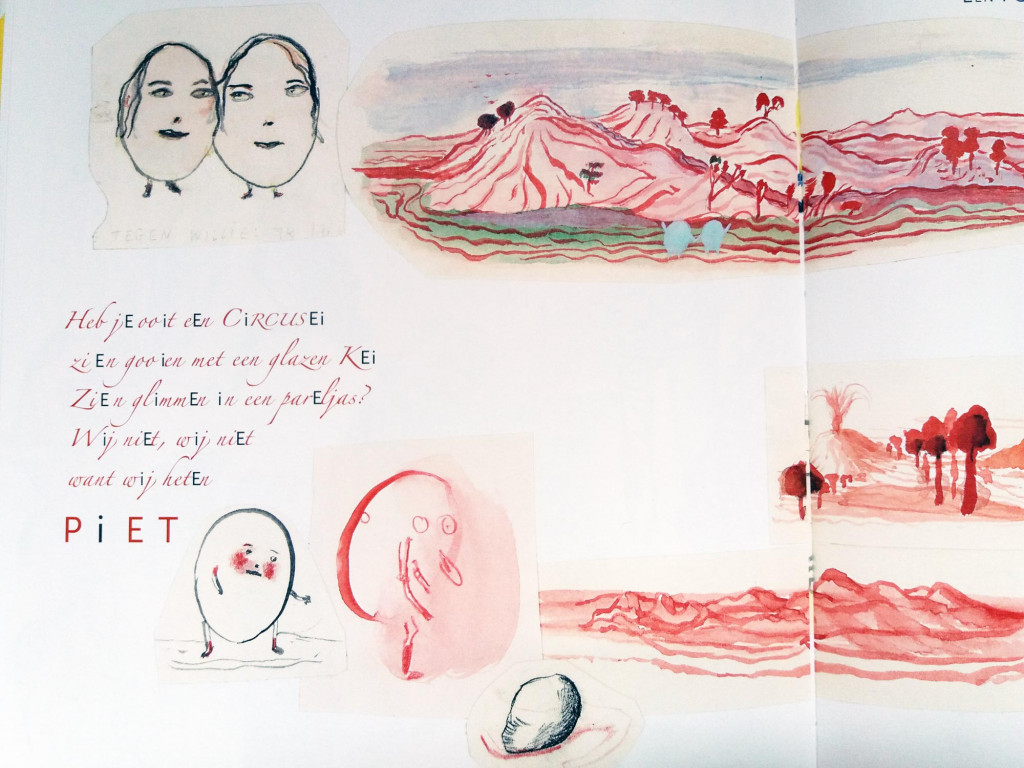 TEGEN WILLIE
Heb jE ooit eEn CiRCUSEi
ziEn gooien met een glazen KEi
ZiEn glimmEn in een parEljas?
Wij niEt, wij niEt
want wij hetEn
PiET